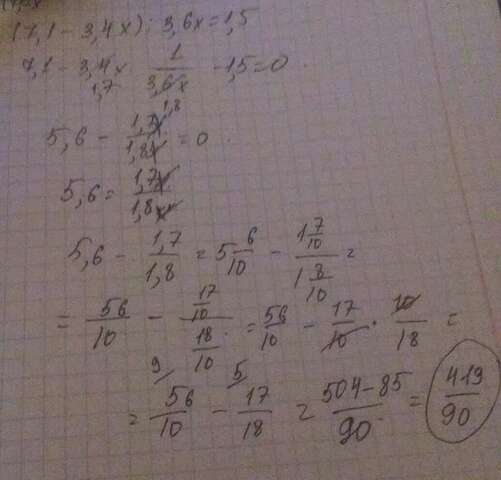 (7,1 - 3,4x) : 3,6x = 1,5
7,1 - 3,4x · 1/3,6x - 1,5 = 0
1,7 1,8
5,6 - 1,7x/1,8x = 0
5,6 = 1,7x/1,8x
5,6 - 1,7/1,8 = 5 6/10 - 1 7/10 / 1 8/10 =
= 56/10 - 17/10 / 18/10 = 56/10 - 17/10 · 10/18 =
9 5
= 56/10 - 17/18 = 504-85/90 = 419/90